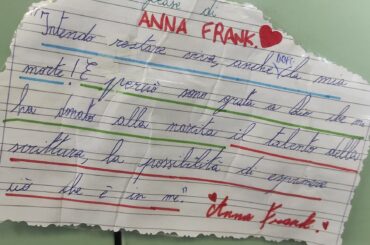 frase di
ANNA FRANK.
"Intendo restare viva anche DOPO la mia
morte! E perciò sono grata a Dio che mi
ha donato alla nascita il talento della
scrittura, la possibilità di esprimere
ciò che è in me."
Anna Frank.